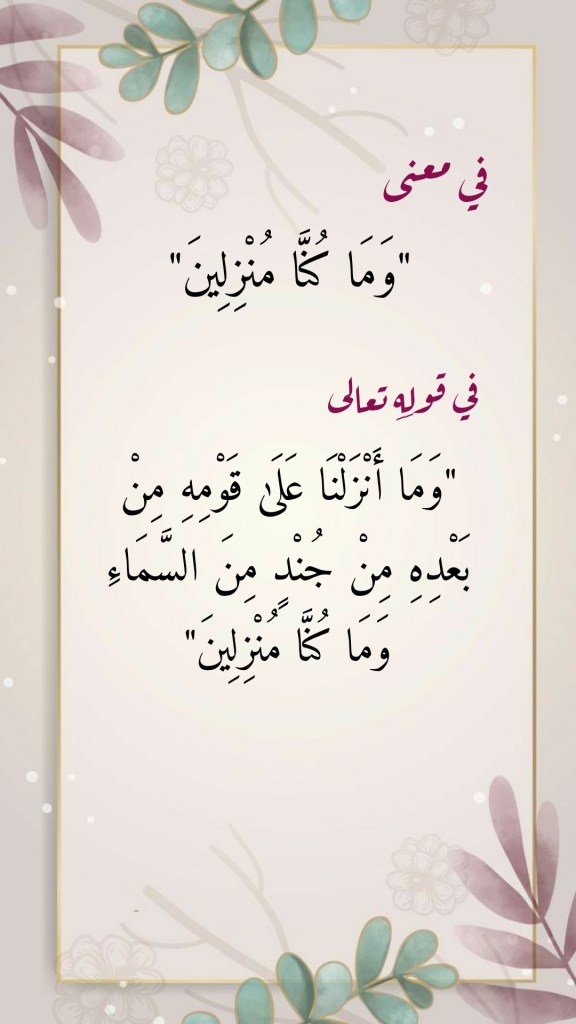 في معنى
"وَمَا كُنَّا مُنْزِلِينَ"
في قولِه تعالى
"وَمَا أَنْزَلْنَا عَلَىٰ قَوْمِهِ مِنْ
بَعْدِهِ مِنْ جُنْدٍ مِنَ السَّمَاءِ
وَمَا كُنَّا مُنْزِلِينَ"